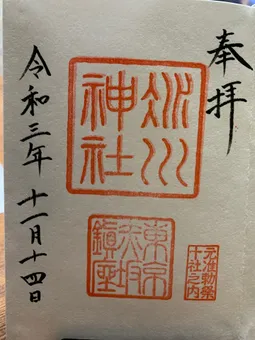 奉拝
冰川
神社
元准勅祭
十社之内
東京
赤坂
鎭座
令和三年十一月十四日